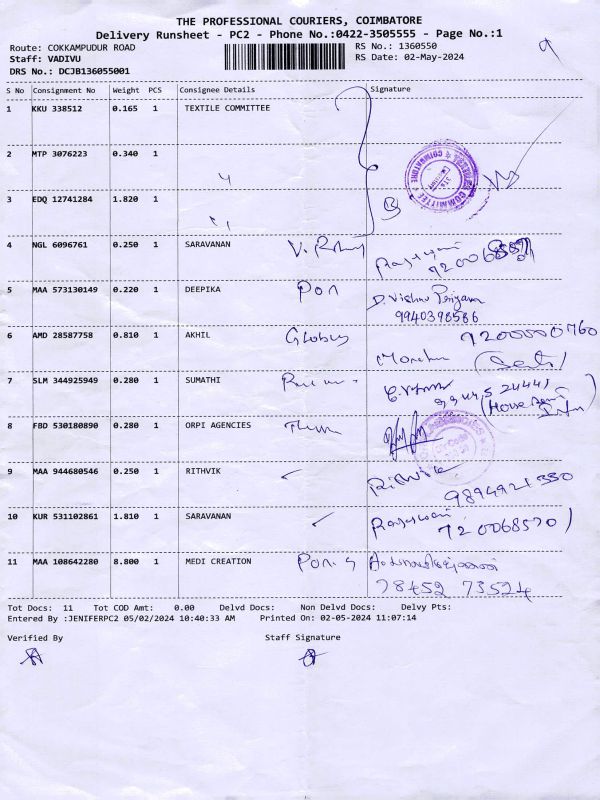 THE PROFESSIONAL COURIERS, COIMBATORE
Delivery Runsheet - PC2 - Phone No.:0422-3505555 - Page No.:1
Route: COKKAMPUDUR ROAD
RS No.: 1360550
Staff: VADIVU
RS Date: 02-May-2024
DRS No.: DCJB136055001
S No Consignment No Weight PCS Consignee Details Signature
1 KKU 338512 0.165 1 TEXTILE COMMITTEE
2 MTP 3076223 0.340 1
3 EDQ 12741284 1.820 1
4 NGL 6096761 0.250 1 SARAVANAN
5 MAA 573130149 0.220 1 DEEPIKA Pon D. Vishnu Priyan
9940398586
6 AMD 28587758 0.810 1 AKHIL Globus
7 SLM 344925949 0.280 1 SUMATHI
8 FBD 530180890 0.280 1 ORPI AGENCIES
9 MAA 944680546 0.250 1 RITHVIK Rithvik
9894921330
10 KUR 531102861 1.810 1 SARAVANAN
11 MAA 108642280 8.800 1 MEDI CREATION Pon.
78452 73524
Tot Docs: 11 Tot COD Amt: 0.00 Delvd Docs: Non Delvd Docs: Delvy Pts:
Entered By :JENIFERPC2 05/02/2024 10:40:33 AM Printed On: 02-05-2024 11:07:14
Verified By Staff Signature